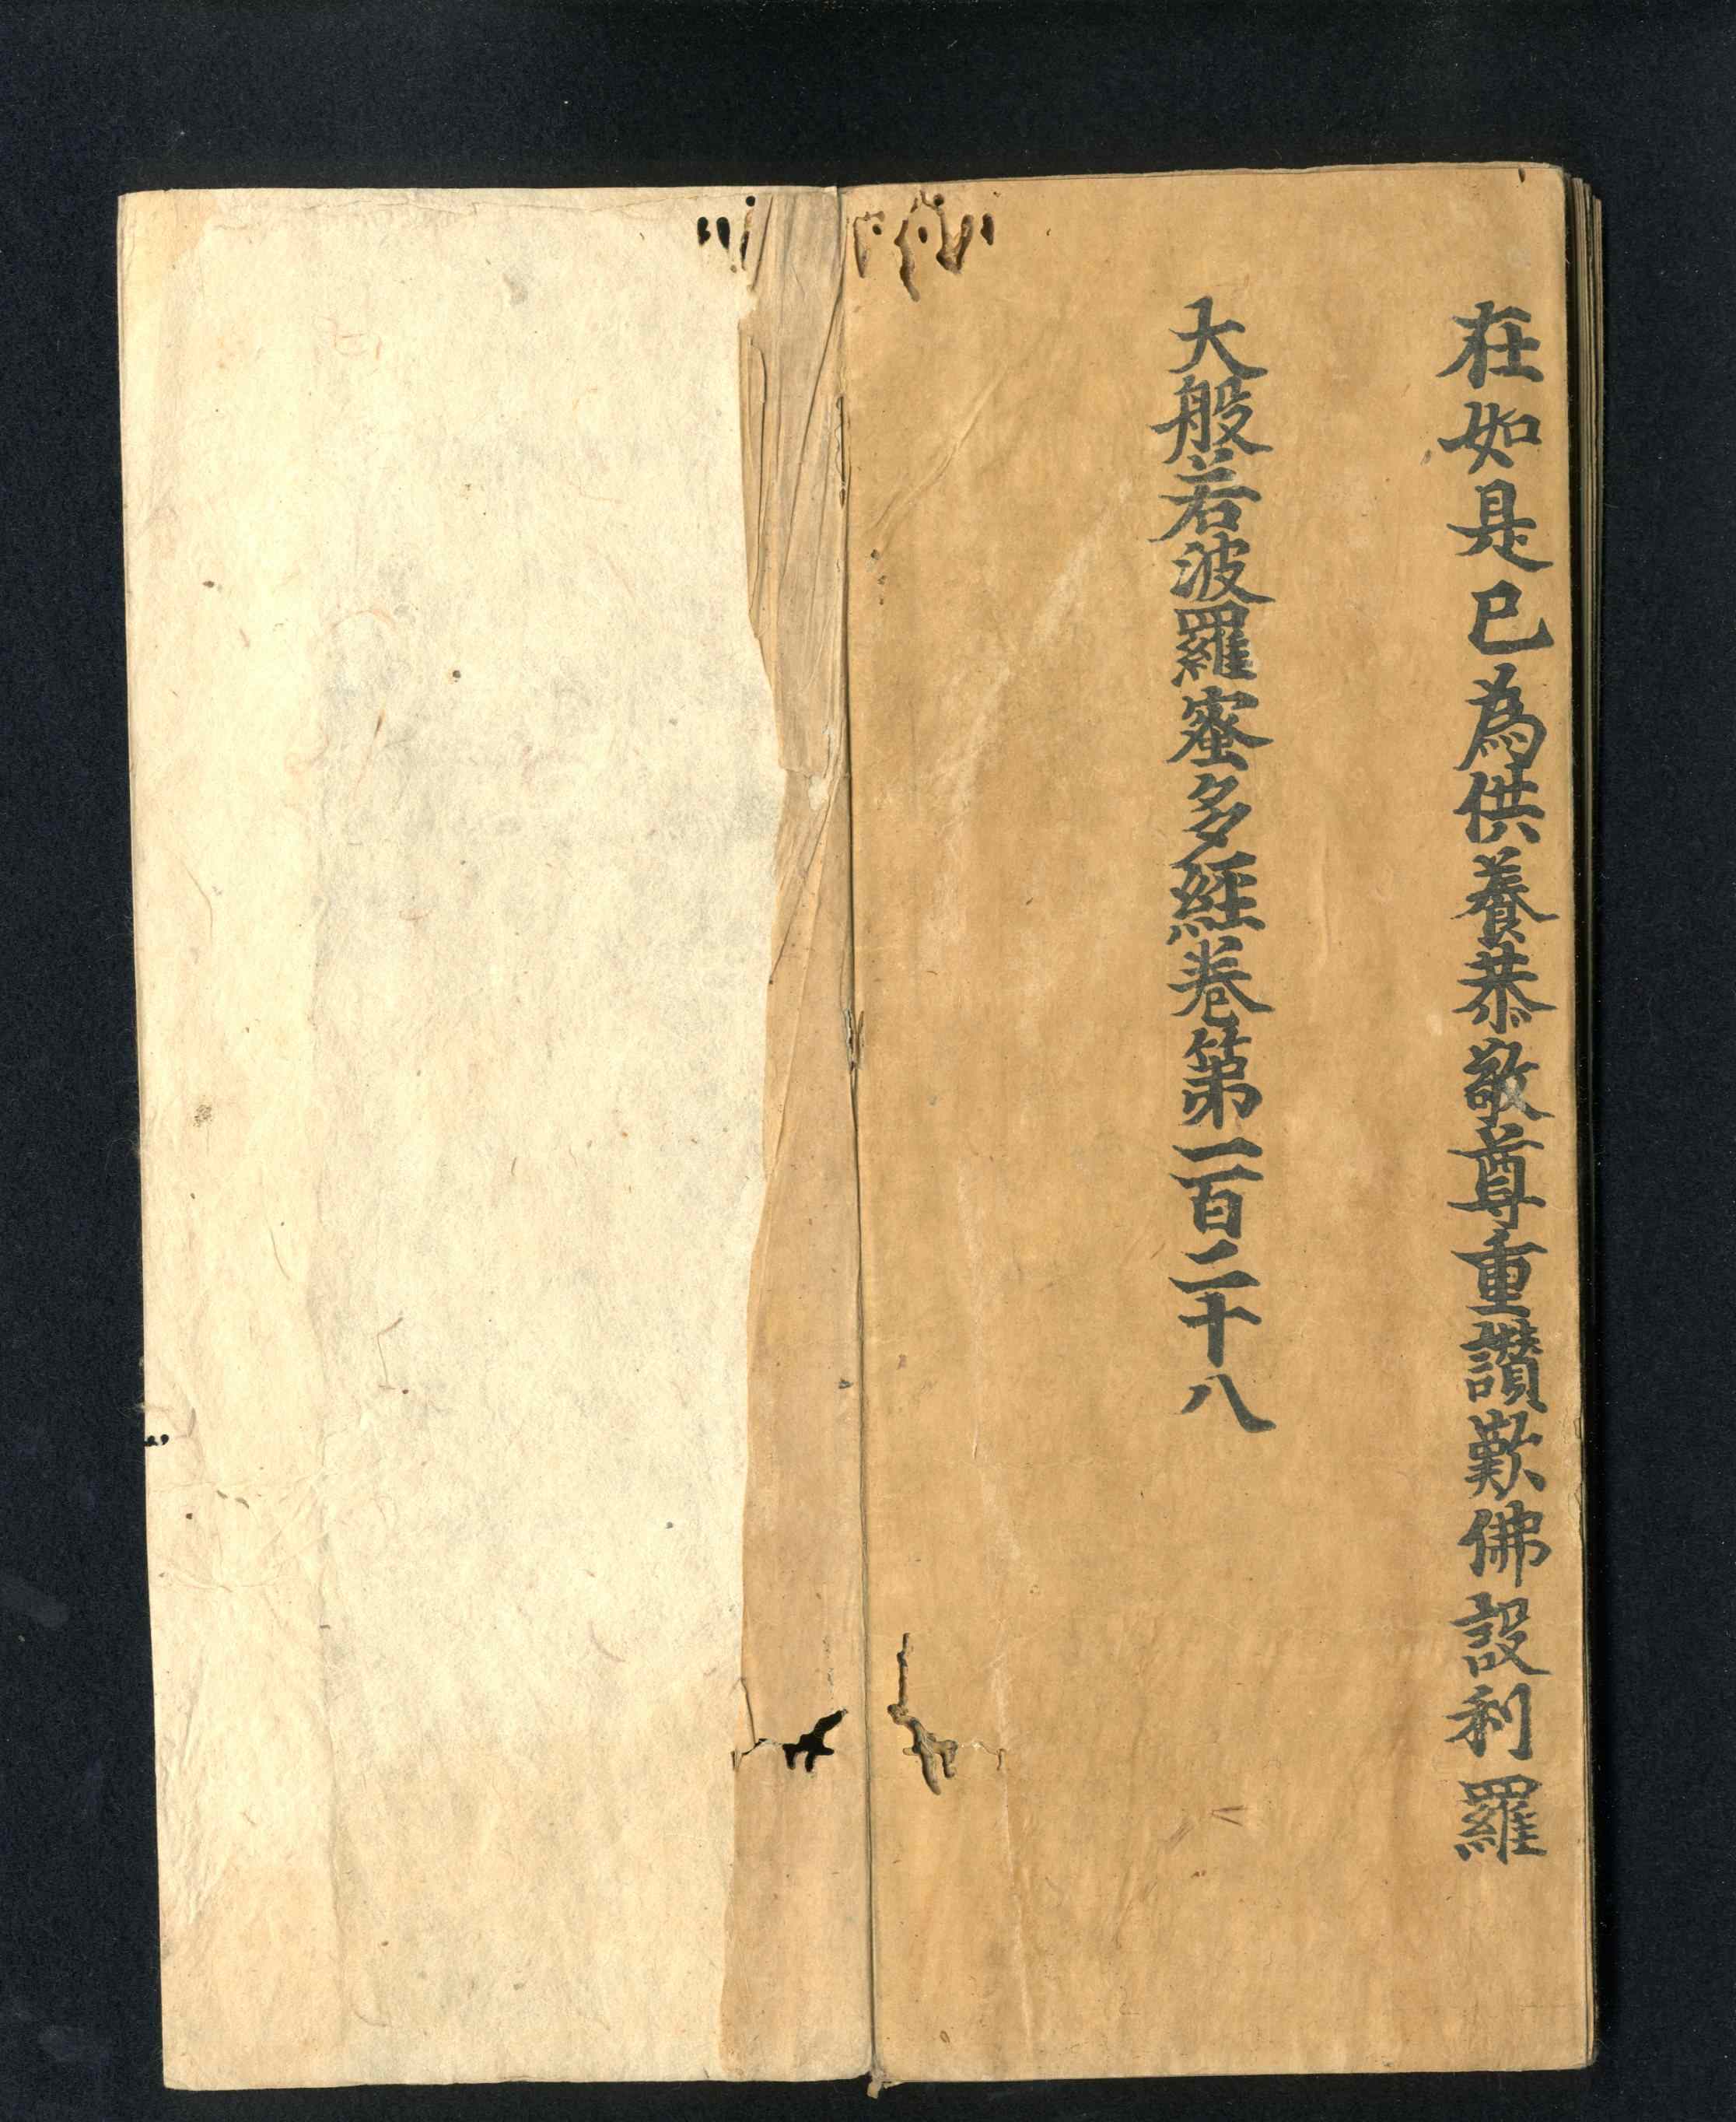 在如是已為供養恭敬尊重讚歎佛設利羅
大般若波羅蜜多經卷第一百二十八